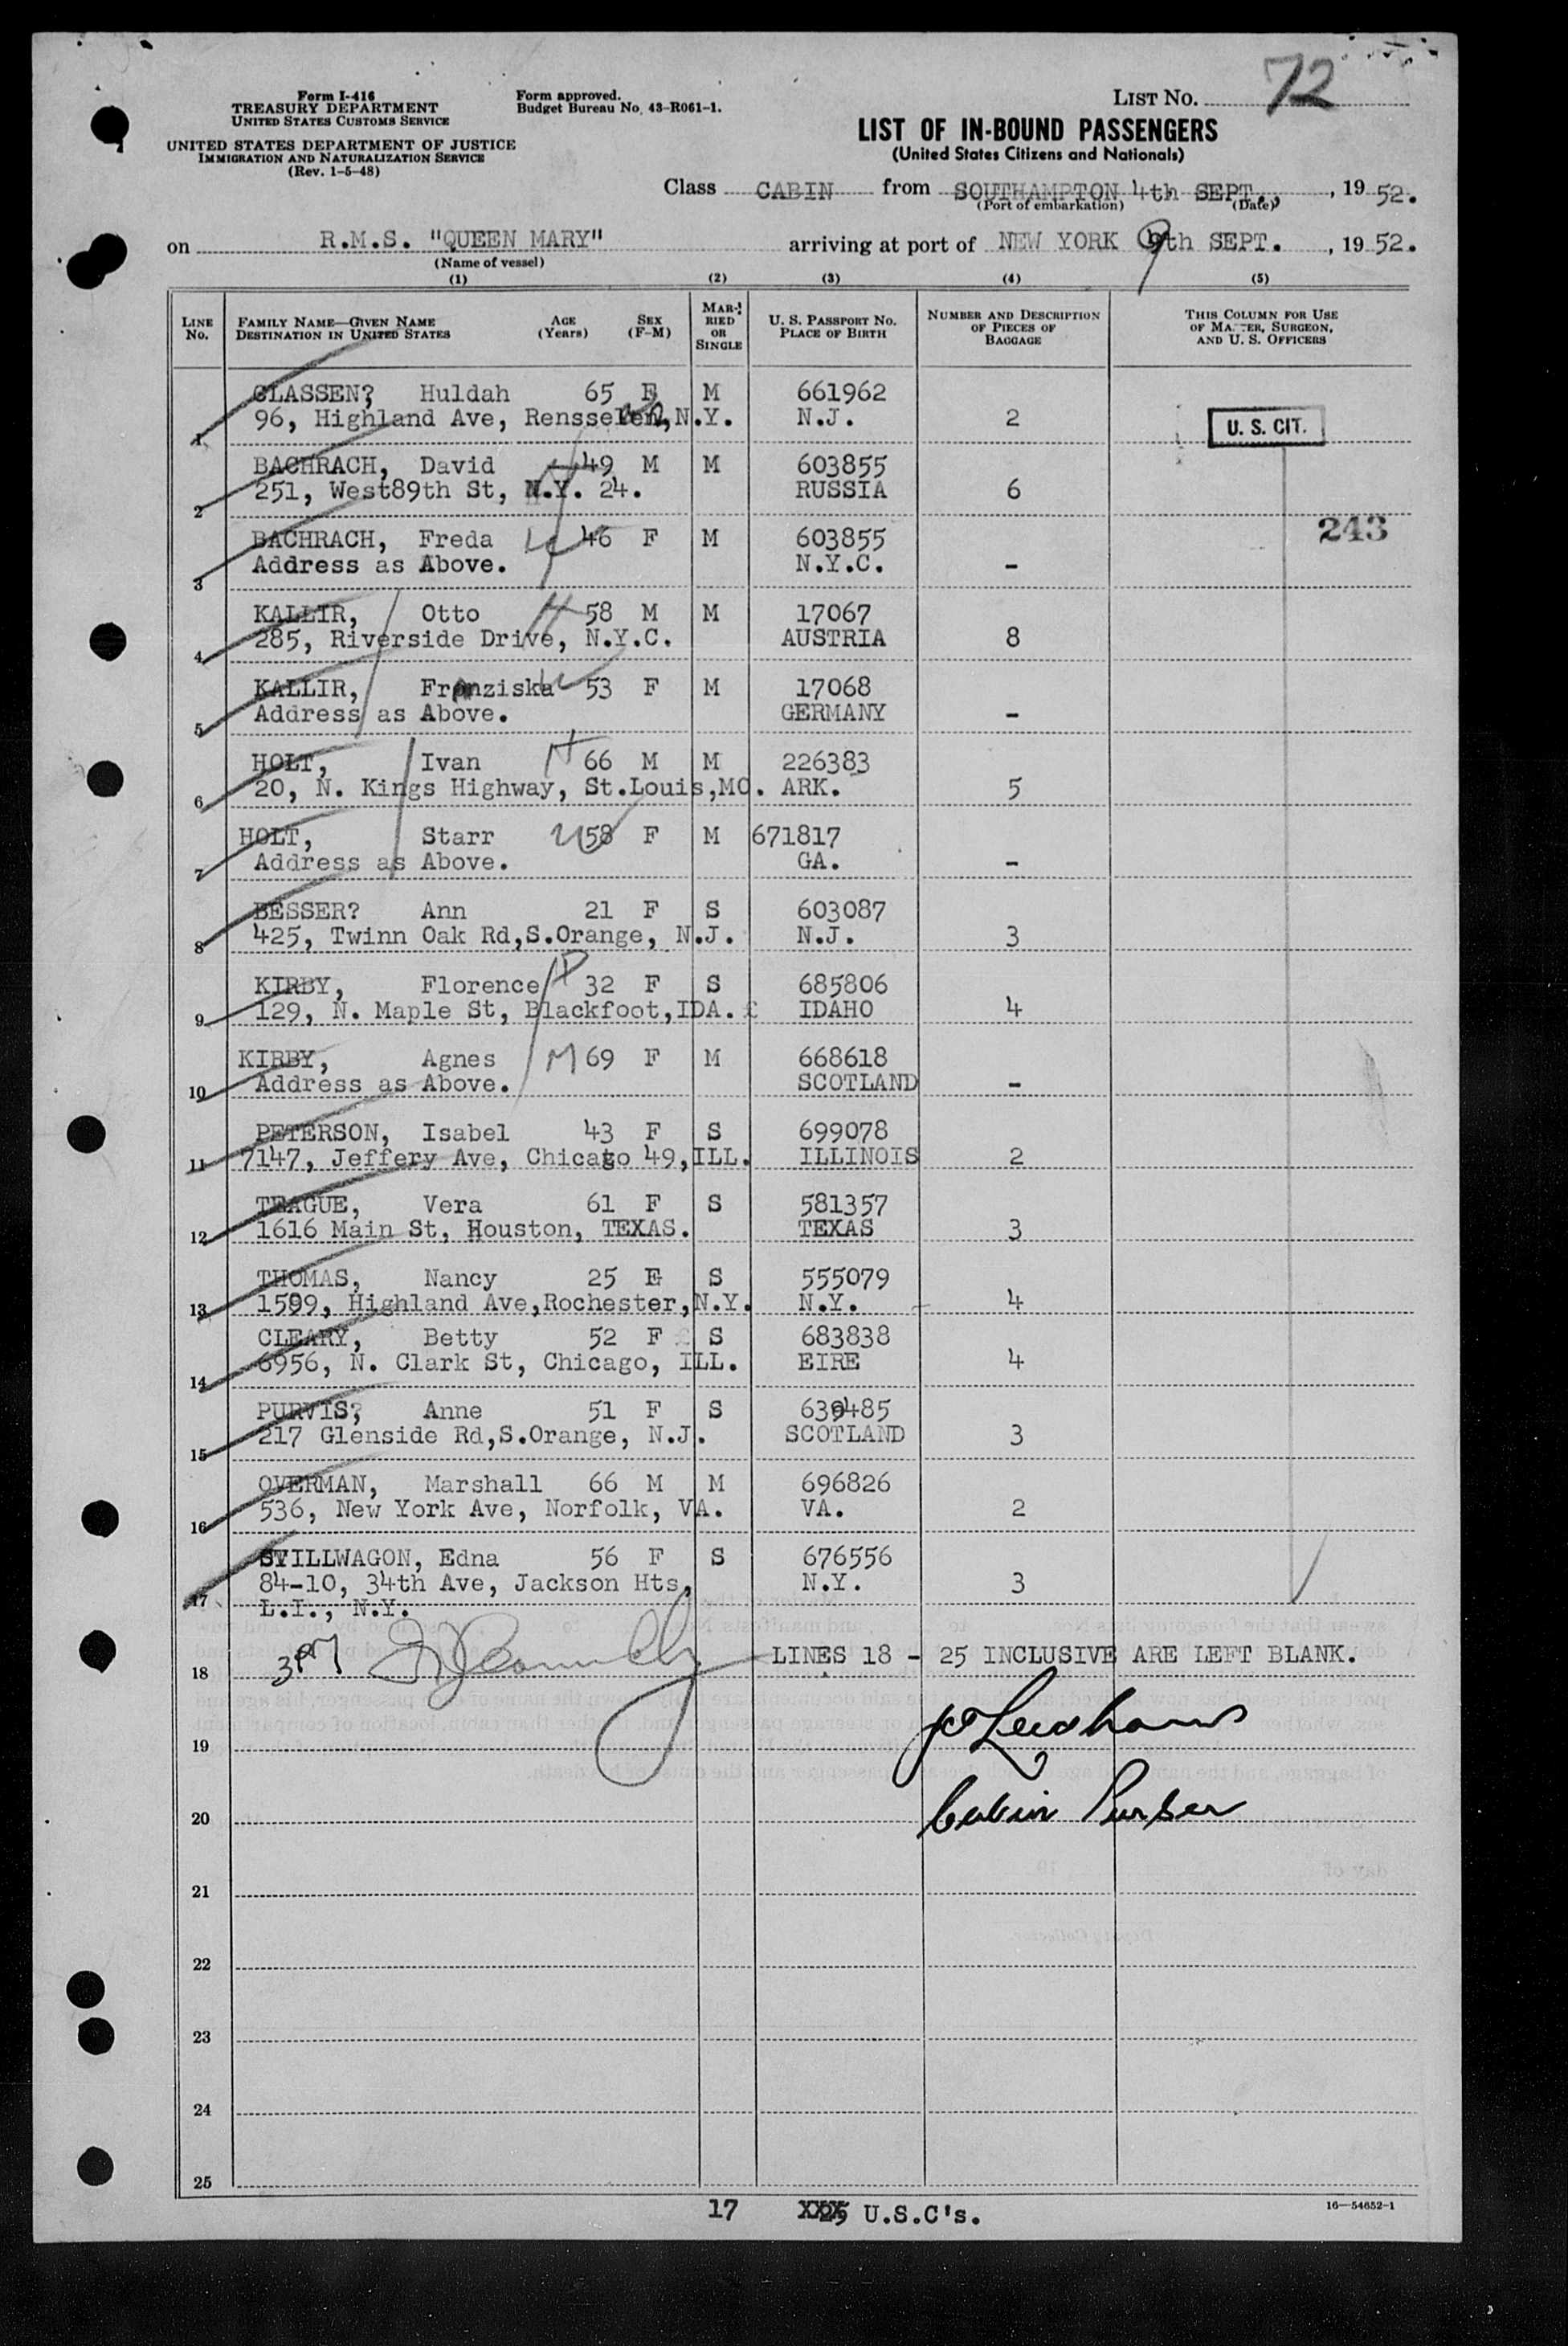 Form I-416
TREASURY DEPARTMENT
UNITED STATES CUSTOMS SERVICE
UNITED STATES DEPARTMENT OF JUSTICE
IMMIGRATION AND NATURALIZATION SERVICE
(Rev. 1-5-48)
Form approved.
Budget Bureau No. 43-R061-1.
LIST No. 72
LIST OF IN-BOUND PASSENGERS
(United States Citizens and Nationals)
Class CABIN from SOUTHAMPTON 4th SEPT., , 19 52.
(Port of embarkation) (Date)
on R.M.S. "QUEEN MARY" arriving at port of NEW YORK 9th SEPT. , 19 52.
(Name of vessel)
(1) (2) (3) (4) (5)
LINE No. FAMILY NAME—GIVEN NAME DESTINATION IN UNITED STATES AGE (Years) SEX (F-M) MARRIED OR SINGLE U. S. PASSPORT NO. PLACE OF BIRTH NUMBER AND DESCRIPTION OF PIECES OF BAGGAGE THIS COLUMN FOR USE OF MASTER, SURGEON, AND U. S. OFFICERS
GLASSEN? Huldah 65 F M 661962
1 96, Highland Ave, Rensseler, N.Y. N.J. 2 U. S. CIT.
BACHRACH, David 49 M M 603855
2 251, West89th St, N.Y. 24. RUSSIA 6
243
BACHRACH, Freda W 46 F M 603855
3 Address as Above. N.Y.C. -
KALLIR, Otto H 58 M M 17067
4 285, Riverside Drive, N.Y.C. AUSTRIA 8
KALLIR, Franziska W 53 F M 17068
5 Address as Above. GERMANY -
HOLT, Ivan H 66 M M 226383
6 20, N. Kings Highway, St.Louis,MO. ARK. 5
HOLT, Starr W 58 F M 671817
7 Address as Above. GA. -
BESSER? Ann 21 F S 603087
8 425, Twinn Oak Rd,S.Orange, N.J. N.J. 3
KIRBY, Florence D 32 F S 685806
9 129, N. Maple St, Blackfoot,IDA. IDAHO 4
KIRBY, Agnes M 69 F M 668618
10 Address as Above. SCOTLAND -
PETERSON, Isabel 43 F S 699078
11 7147, Jeffery Ave, Chicago 49,ILL. ILLINOIS 2
TEAGUE, Vera 61 F S 581357
12 1616 Main St, Houston, TEXAS. TEXAS 3
THOMAS, Nancy 25 F S 555079
13 1599, Highland Ave,Rochester,N.Y. N.Y. 4
CLEARY, Betty 52 F S 683838
14 6956, N. Clark St, Chicago, ILL. EIRE 4
PURVIS? Anne 51 F S 639485
15 217 Glenside Rd,S.Orange, N.J. SCOTLAND 3
OVERMAN, Marshall 66 M M 696826
16 536, New York Ave, Norfolk, VA. VA. 2
STILLWAGON, Edna 56 F S 676556
84-10, 34th Ave, Jackson Hts, N.Y. 3
17 L.I., N.Y.
18 LINES 18 - 25 INCLUSIVE ARE LEFT BLANK.
19
20 Cabin Purser
21
22
23
24
25
17 U.S.C's.
16—54652-1